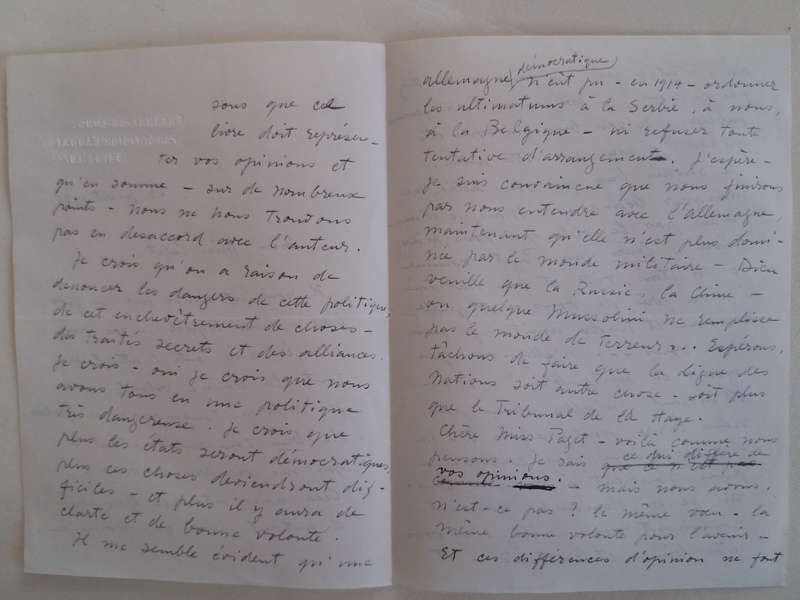 sons que cel
livre doit représen-
ter vos opinions et
qu'en somme - sur de nombreux
points - nous ne nous trouvons
pas en desaccord avec l'auteur.
Je crois qu'on a raison de
denoncer les dangers de cette politique,
de cet enchevêtrement de choses -
des traités secrets et des alliances.
Je crois - oui je crois que nous
avons tous eu une politique
très dangereuse. Je crois que
plus les états seront démocratiques,
plus ces choses deviendront dif-
ficiles - et plus il y aura de
clarté et de bonne volonté.
Il me semble évident qu'une
démocratique
allemagne n'eût pu - en 1914 - ordonner
les ultimatums à la Serbie, à nous,
à la Belgique - ni refuser toute
tentative d'arrangement. J'espère -
je suis convaincue que nous finirons
par nous entendre avec l'Allemagne,
maintenant qu'elle n'est plus domi-
née par le monde militaire - Dieu
veuille que la Russie, la Chine -
ou quelque Mussolini ne remplisse
pas le monde de terreur... Espérons,
tâchons de faire que la ligue des
Nations soit autre chose - soit plus
que le Tribunal de la Haye.
Chère Miss Paget - voilà comme nous
pensons. Je sais que ce n'est pas
ce qui diffère de
vos opinions. - mais nous avons,
n'est-ce pas? le même vœu - la
même bonne volonté pour l'avenir -
Et ces différences d'opinion ne font